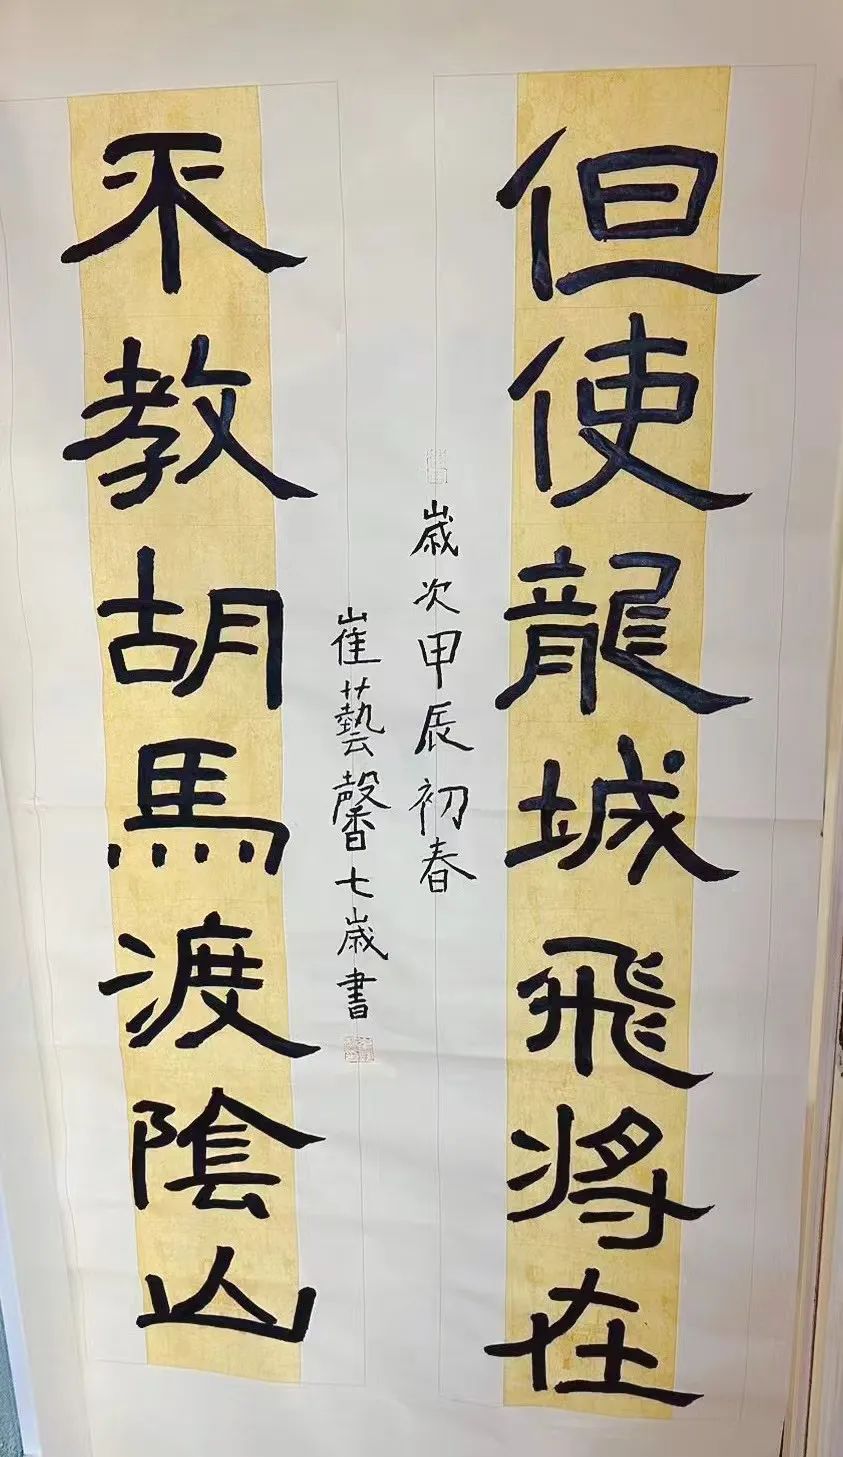 但使龍城飛將在
歲次甲辰初春
崔藝馨七歲書
不教胡馬渡陰山